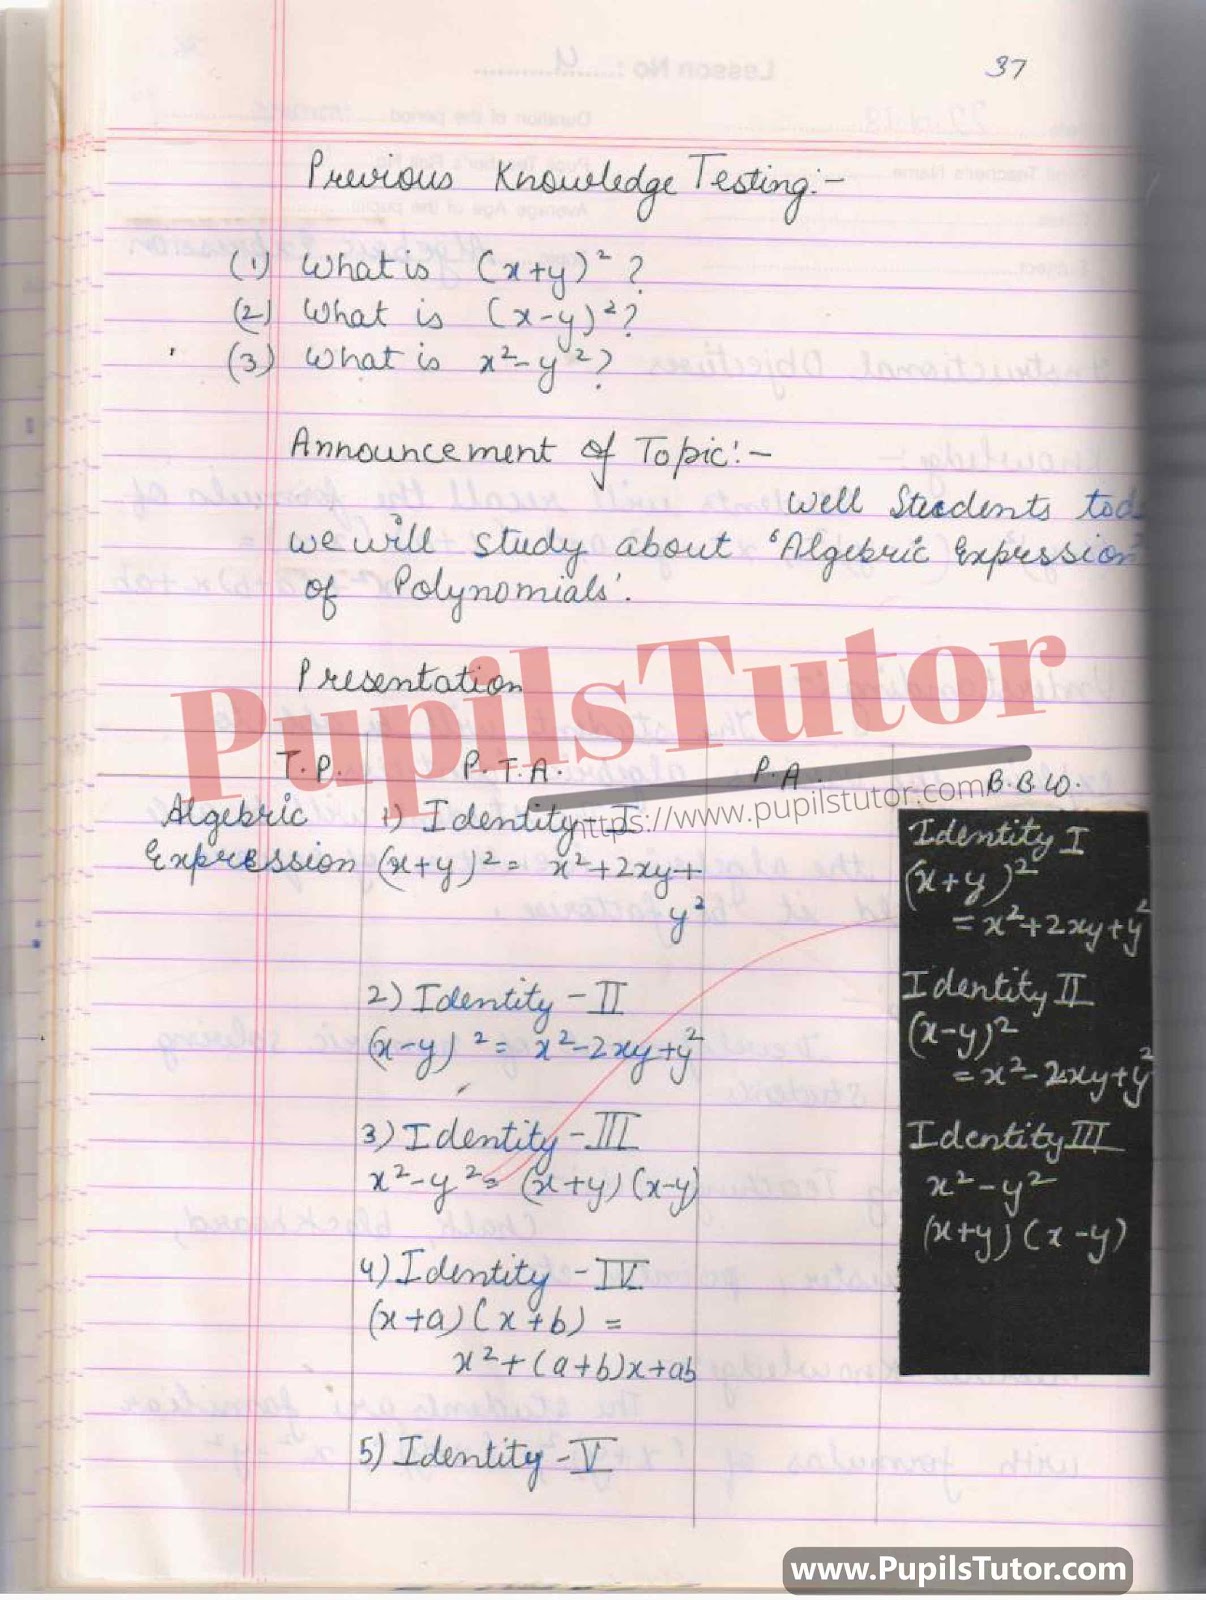 37
Previous Knowledge Testing:-
(1) What is (x+y)²?
(2) What is (x-y)²?
(3) What is x²-y²?
Announcement of Topic:-
Well Students tod
we will study about 'Algebric Expression
of Polynomials'.
Presentation
PupilsTutor
https://www.pupilstutor.com
T.P. P.T.A. P.A. B.B.W.
Algebric
Expression
1) Identity-I
(x+y)² = x²+2xy+
y²
2) Identity-II
(x-y)² = x²-2xy+y²
3) Identity-III
x²-y² = (x+y)(x-y)
4) Identity-IV
(x+a)(x+b) =
x²+(a+b)x+ab
5) Identity-V
Identity I
(x+y)²
= x²+2xy+y²
Identity II
(x-y)²
= x²-2xy+y²
Identity III
x²-y²
(x+y)(x-y)
www.PupilsTutor.com